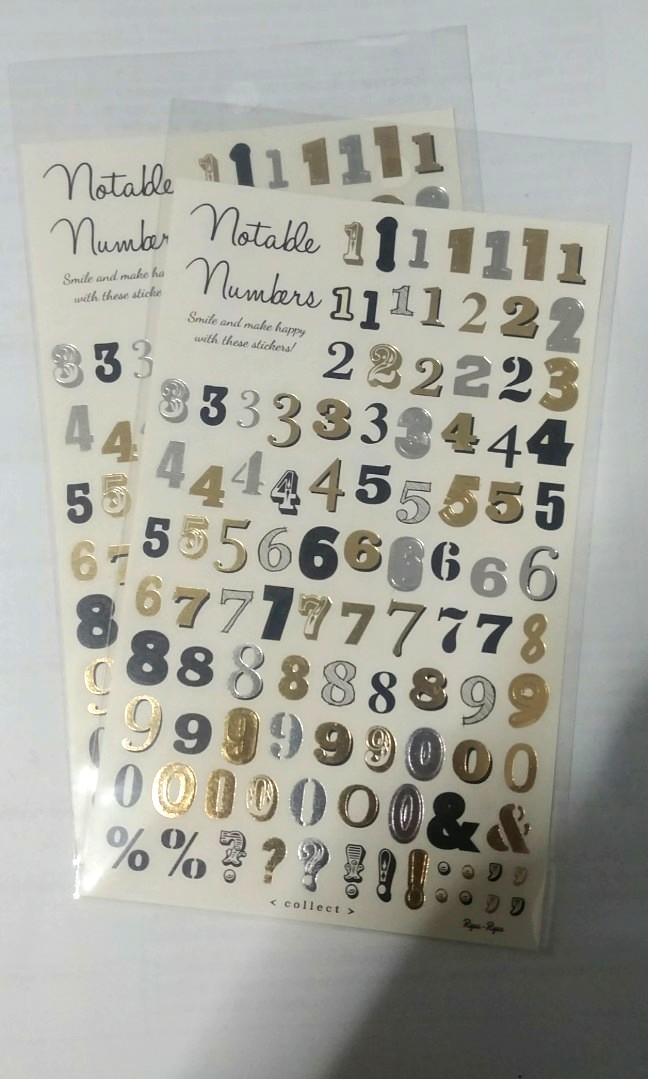 Notable
Numbers
Smile and make ha
with these sticke
1 1 1 1 1 1 1
3 3 3
4 4
5 5
6 7
8
9
Notable
Numbers
Smile and make happy
with these stickers!
1 1 1 1 1 1 1
1 1 1 1 2 2 2
2 2 2 2 2 3
3 3 3 3 3 3 3 4 4 4
4 4 4 4 4 5 5 5 5 5
5 5 5 6 6 6 6 6 6 6
6 7 7 7 7 7 7 7 7 8
8 8 8 8 8 8 8 9 9
9 9 9 9 9 9 0 0 0
0 0 0 0 0 0 0 & &
% % ? ? ? ! ! ! : : , ,
< collect >
Ryu-Ryu